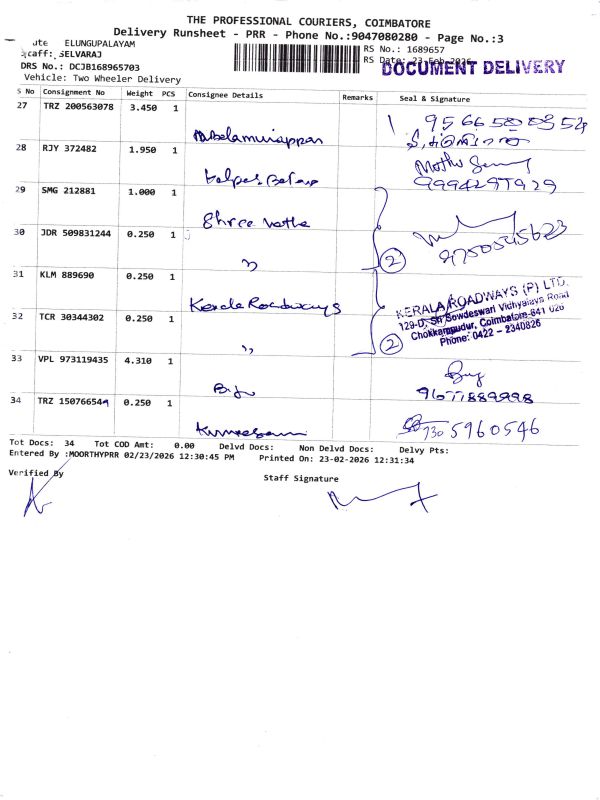 THE PROFESSIONAL COURIERS, COIMBATORE
Delivery Runsheet - PRR - Phone No.:9047080280 - Page No.:3
ELUNGUPALAYAM
RS No.: 1689657
Staff: SELVARAJ
RS Date: 23-Feb-2026
DOCUMENT DELIVERY
DRS No.: DCJB168965703
Vehicle: Two Wheeler Delivery
S No Consignment No Weight PCS Consignee Details Remarks Seal & Signature
27 TRZ 200563078 3.450 1
28 RJY 372482 1.950 1
29 SMG 212881 1.000 1
9994297929
Shree Natha
30 JDR 509831244 0.250 1
" 2 9750545623
31 KLM 889690 0.250 1
Kerala Roadways
KERALA ROADWAYS (P) LTD.
129-D, Sri Sowdeswari Vidhyalaya Road
Chokkampudur, Coimbatore-641 026
Phone: 0422 - 2340826
32 TCR 30344302 0.250 1
" 2
33 VPL 973119435 4.310 1
Biju
9677889998
34 TRZ 150766549 0.250 1
Kumaresan
7305960546
Tot Docs: 34 Tot COD Amt: 0.00 Delvd Docs: Non Delvd Docs: Delvy Pts:
Entered By :MOORTHYPRR 02/23/2026 12:30:45 PM Printed On: 23-02-2026 12:31:34
Verified By
Staff Signature